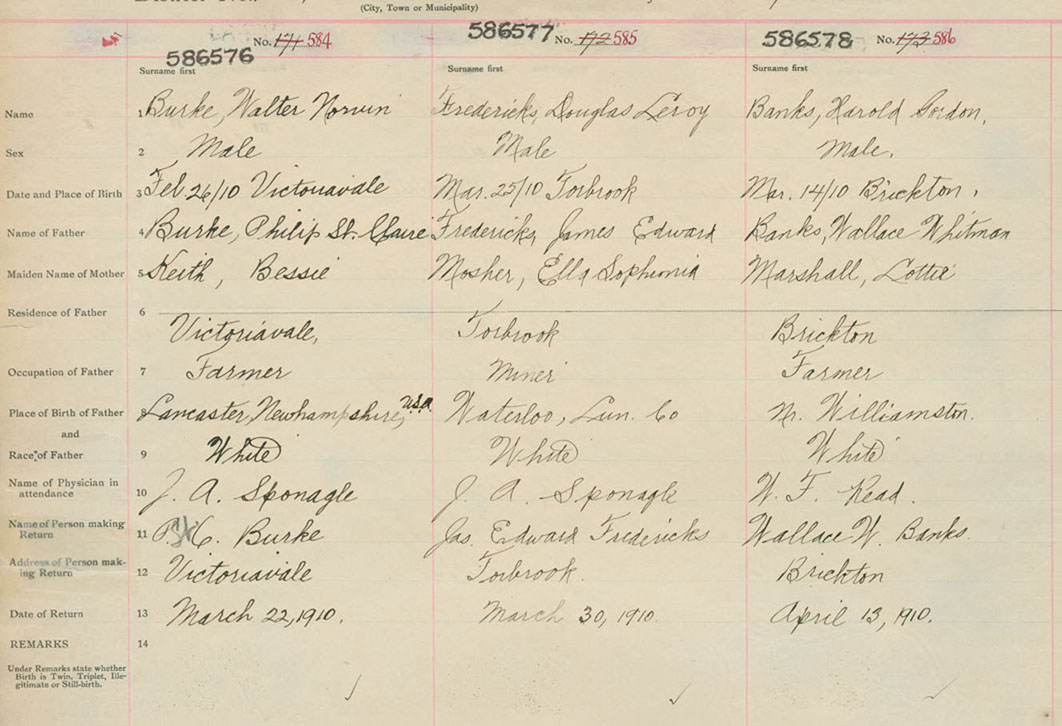 (City, Town or Municipality)
586576 No. 171 584 586577 No. 172 585 586578 No. 173 586
Surname first Surname first Surname first
Name 1 Burke, Walter Norvin Fredericks, Douglas Leroy Banks, Harold Gordon.
Sex 2 Male Male Male.
Date and Place of Birth 3 Feb 26/10 Victoriavale Mar. 25/10 Torbrook Mar. 14/10 Brickton.
Name of Father 4 Burke, Philip St. Claire Fredericks, James Edward Banks, Wallace Whitman
Maiden Name of Mother 5 Keith, Bessie Mosher, Ella Sophronia Marshall, Lottie
Residence of Father 6
Victoriavale, Torbrook Brickton
Occupation of Father 7 Farmer Miner Farmer
Place of Birth of Father 8 Lancaster, Newhampshire, U.S.A. Waterloo, Lun. Co Nr. Williamston.
and
Race of Father 9 White White White
Name of Physician in
attendance 10 J. A. Sponagle J. A. Sponagle W. F. Read.
Name of Person making
Return 11 P. St. C. Burke Jas. Edward Fredericks Wallace W. Banks.
Address of Person mak-
ing Return 12 Victoriavale Torbrook. Brickton
Date of Return 13 March 22, 1910. March 30, 1910. April 13, 1910.
REMARKS 14
Under Remarks state whether
Birth is Twin, Triplet, Ille-
gitimate or Still-birth.